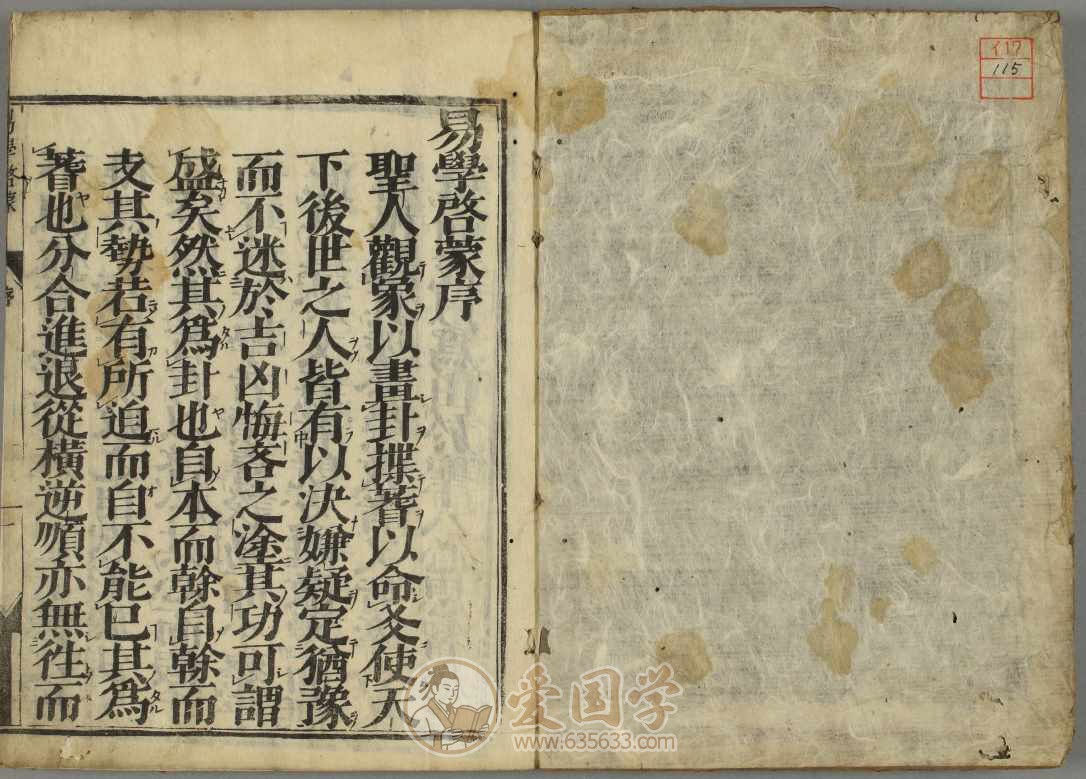 易學啓蒙序
聖人觀象以畫卦揲蓍以命爻使天
下後世之人皆有以决嫌疑定猶豫
而不迷於吉凶悔吝之塗其功可謂
盛矣然其爲卦也自本而幹自幹而
支其勢若有所迫而自不能已其爲
蓍也分合進退從橫逆順亦無徃而
易學啓蒙
序
イ17
115
爱国学
www.635633.com